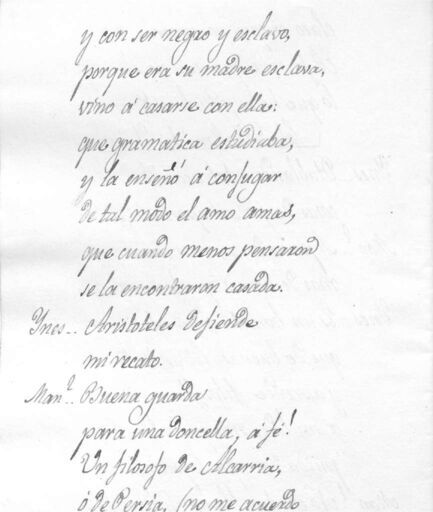 y con ser negro y esclavo,
porque era su madre esclava,
vino á casarse con ella:
que gramatica estudiaba,
y la enseñó á conjugar
de tal modo el amo amas,
que cuando menos pensaron
se la encontraron casada.
Ynes.. Aristoteles defiende
mi recato.
Man.l.. Buena guarda
para una doncella, á fé!
Un filosofo de Alcarria,
ó de Persia, (no me acuerdo